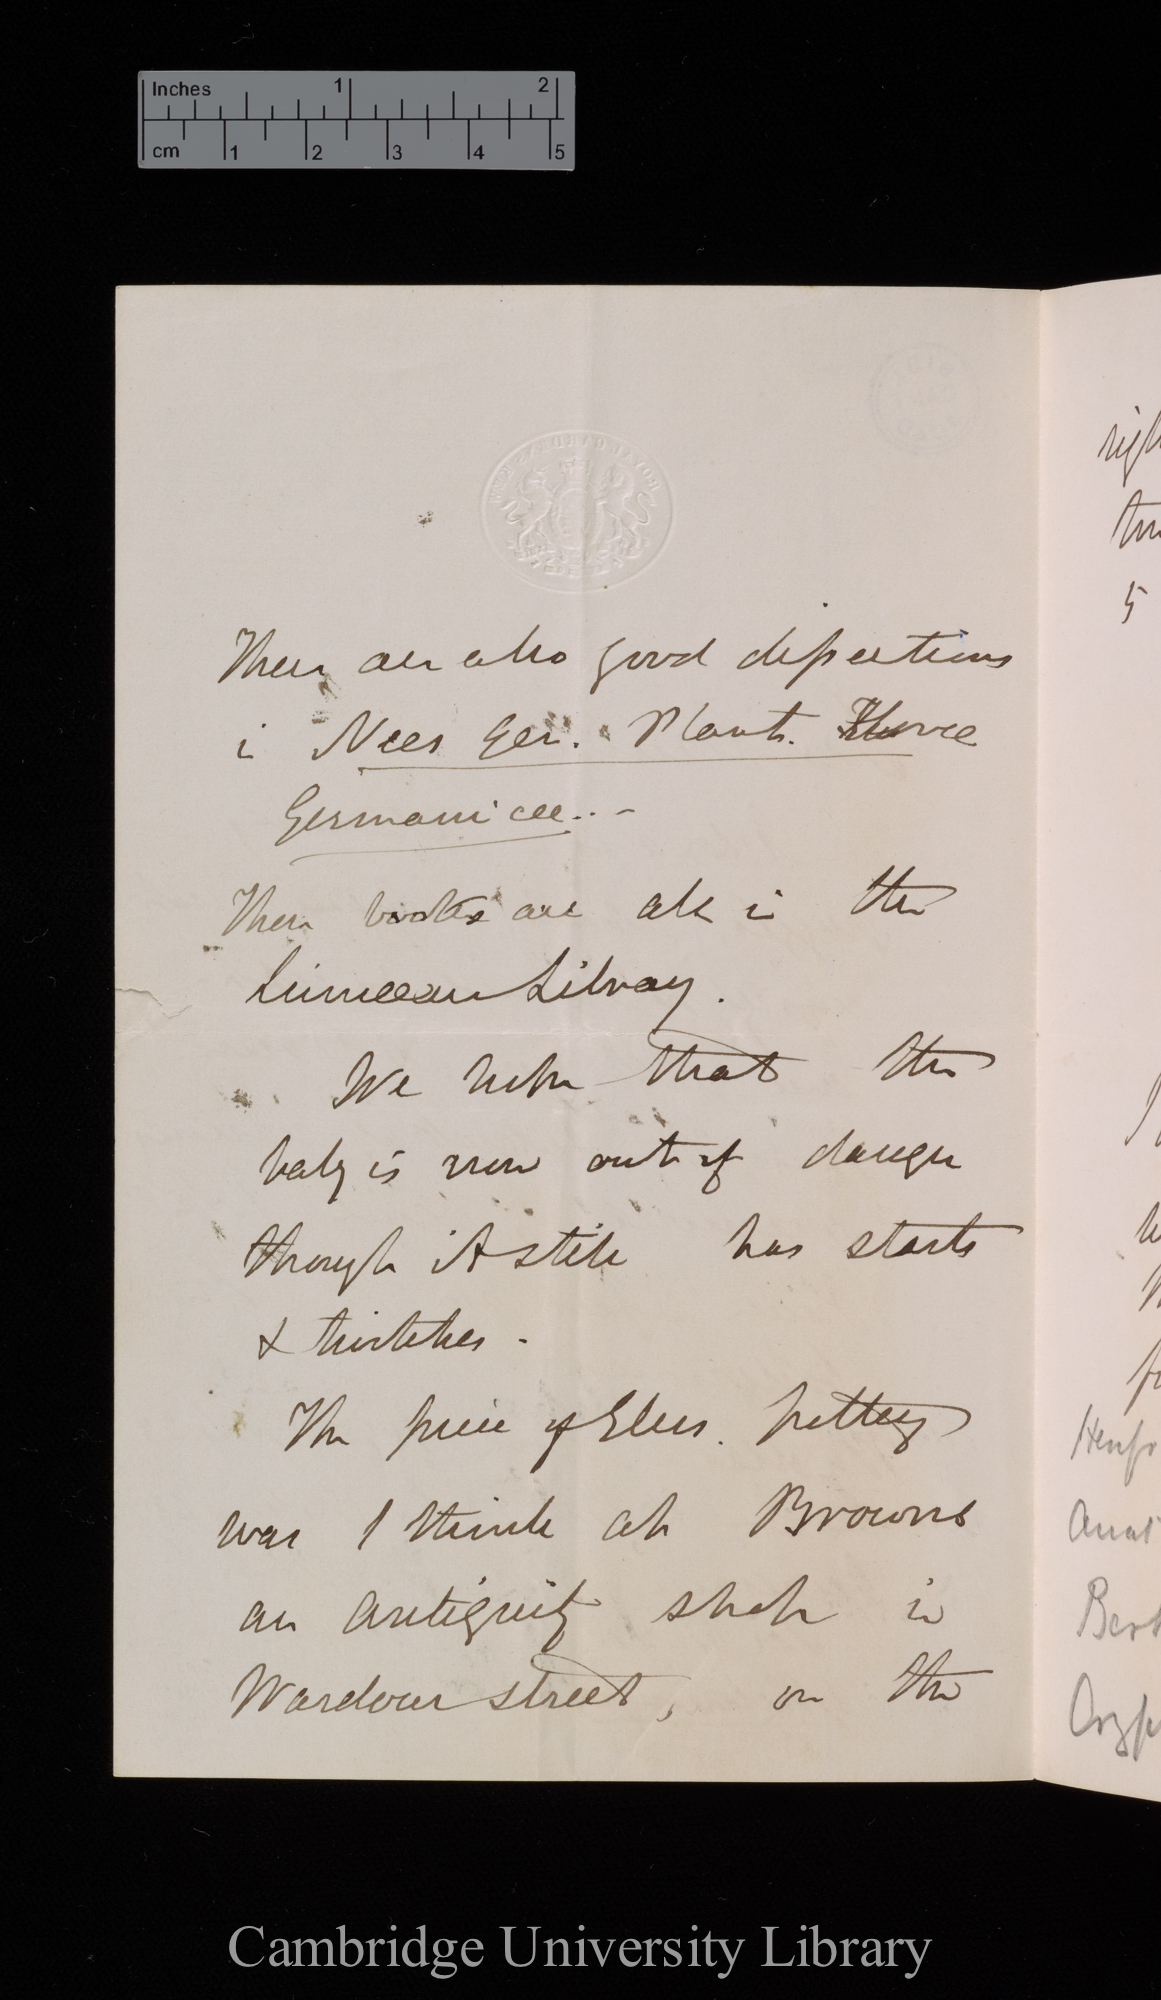 Inches 1 2
cm 1 2 3 4 5
There are also good dissections
in Nees Gen. Plant. Florae
Germanicae. –
These books are all in the
Linnaean Library.
We hope that the
baby is now out of danger
though it still has starts
& twitches –
The piece of Elers. pottery
was I think at Browns
an antiquity shop in
Wardour street, on the
5
Cambridge University Library